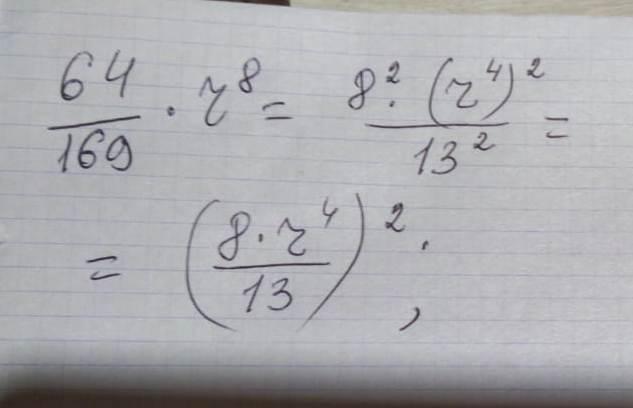 64/169 · r⁸ = 8² · (r⁴)²/13² =
= (8 · r⁴/13)² . ,